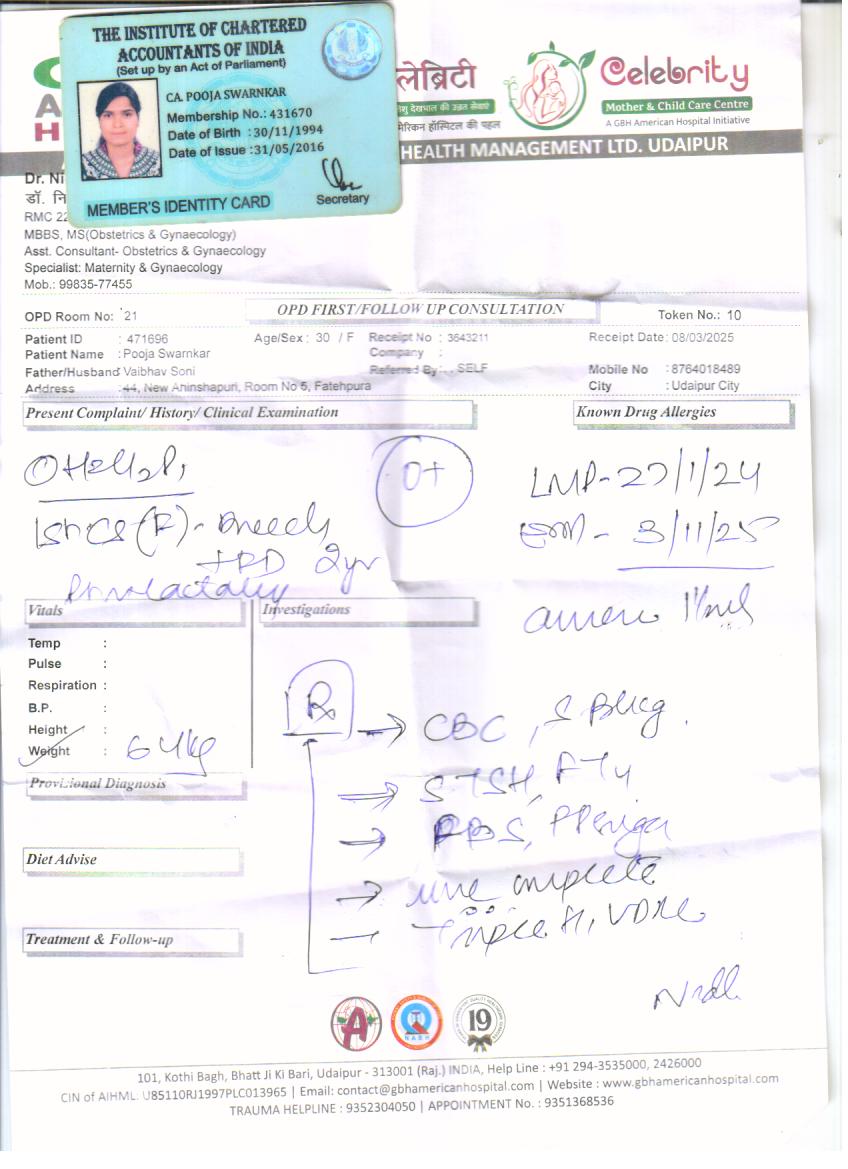 THE INSTITUTE OF CHARTERED
ACCOUNTANTS OF INDIA
(Set up by an Act of Parliament)
CA. POOJA SWARNKAR
Membership No.: 431670
Date of Birth : 30/11/1994
Date of Issue : 31/05/2016
Secretary
MEMBER'S IDENTITY CARD
लेब्रिटी
शिशु देखभाल की उन्नत सेवाएं
मेरिकन हॉस्पिटल की पहल
Celebrity
Mother & Child Care Centre
A GBH American Hospital Initiative
HEALTH MANAGEMENT LTD. UDAIPUR
Dr. Ni
डॉ. नि
RMC 22
MBBS, MS(Obstetrics & Gynaecology)
Asst. Consultant- Obstetrics & Gynaecology
Specialist: Maternity & Gynaecology
Mob.: 99835-77455
OPD Room No: 21 OPD FIRST/FOLLOW UP CONSULTATION Token No.: 10
Patient ID : 471696 Age/Sex: 30 / F Receipt No : 3643211 Receipt Date: 08/03/2025
Patient Name : Pooja Swarnkar Company :
Father/Husband Vaibhav Soni Referred By: . . SELF Mobile No : 8764018489
Address : 44, New Ahinshapuri, Room No 5, Fatehpura City : Udaipur City
Present Complaint/ History/ Clinical Examination Known Drug Allergies
O+
LMP - 27/1/24
3/11/25
2yr
Vitals Investigations
Temp :
Pulse :
Respiration :
B.P. :
Height :
Weight : 64kg
Rx
→ CBC,
→ S TSH,
→
→ complete
— Triple H, VDRL
Provisional Diagnosis
Diet Advise
Treatment & Follow-up
A
Q
NABH
19
101, Kothi Bagh, Bhatt Ji Ki Bari, Udaipur - 313001 (Raj.) INDIA, Help Line : +91 294-3535000, 2426000
CIN of AIHML: U85110RJ1997PLC013965 | Email: contact@gbhamericanhospital.com | Website : www.gbhamericanhospital.com
TRAUMA HELPLINE : 9352304050 | APPOINTMENT No. : 9351368536